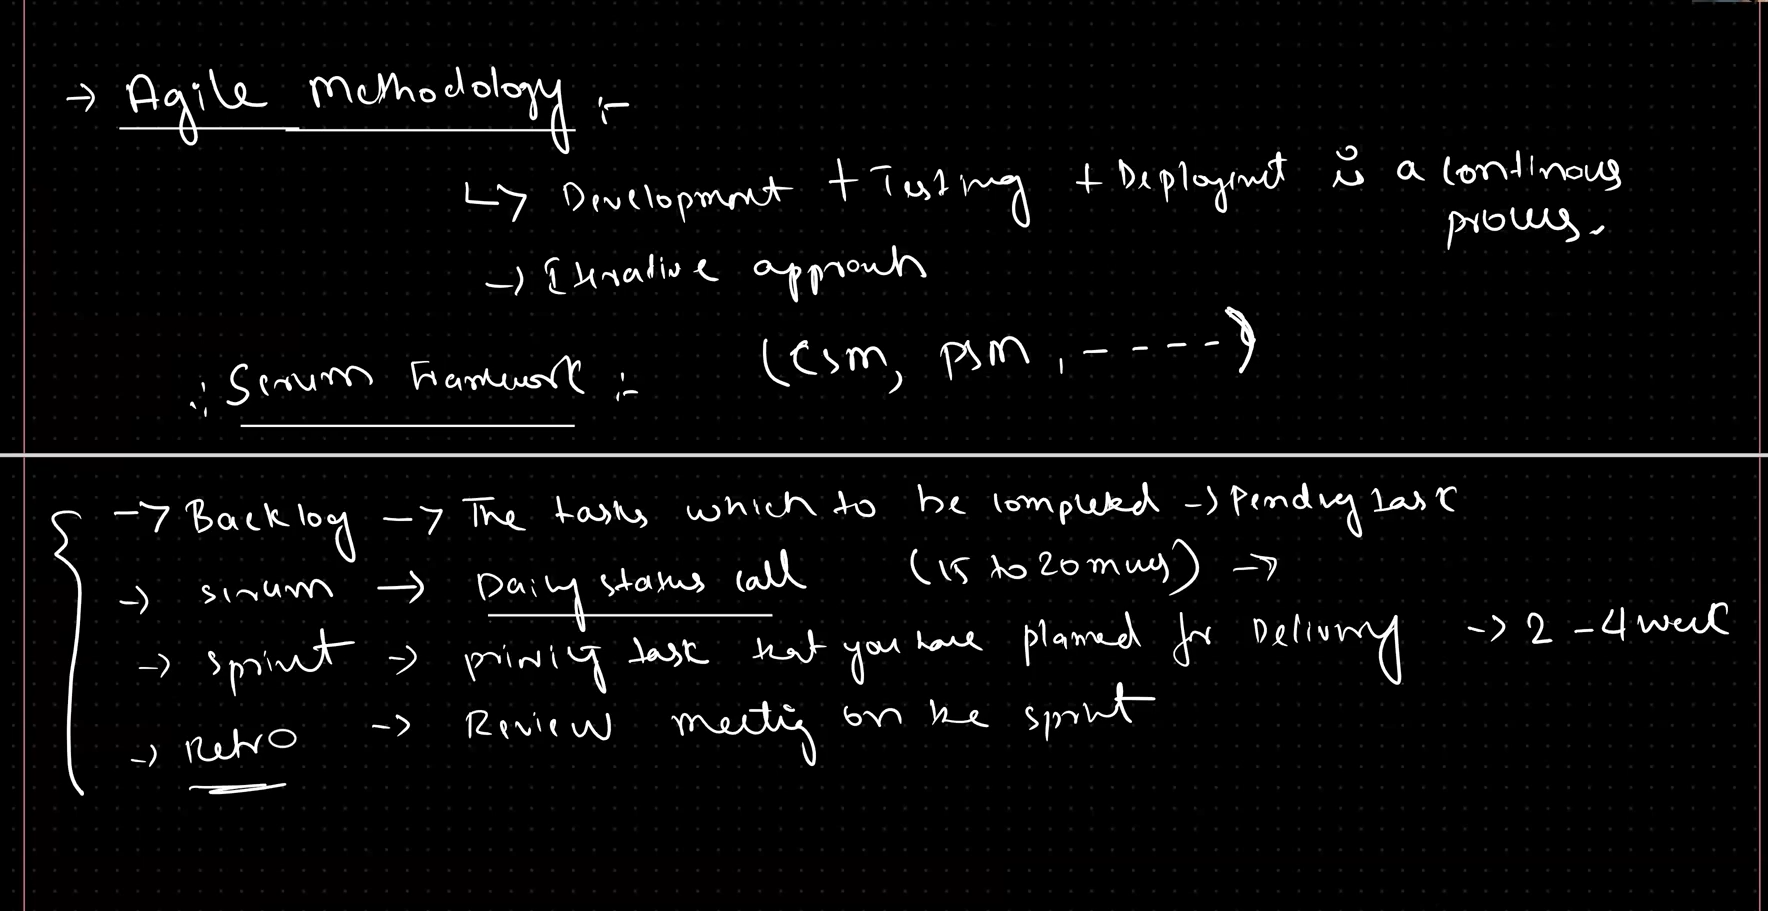 → Agile Methodology :-
↳ Development + Testing + Deployment is a continous
process.
→ Iterative approach
(CSM, PSM, - - - -)
∴ Scrum Framework :-
→ Backlog → The tasks which to be completed → Pending task
→ scrum → Daily status call (15 to 20 mins) →
→ sprint → priority task that you have planned for Delivery → 2 - 4 week
→ Retro → Review meeting on the sprint